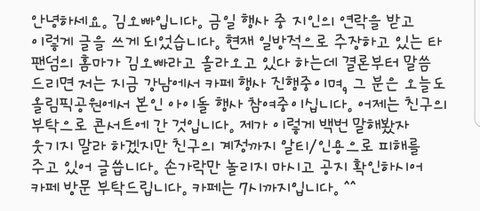 안녕하세요. 김오빠입니다. 금일 행사 중 지인의 연락을 받고
이렇게 글을 쓰게 되었습니다. 현재 일방적으로 주장하고 있는 타
팬덤의 홈마가 김오빠라고 올라오고 있다 하는데 결론부터 말씀
드리면 저는 지금 강남에서 카페 행사 진행중이며, 그 분은 오늘도
올림픽공원에서 본인 아이돌 행사 참여중이십니다. 어제는 친구의
부탁으로 콘서트에 간 것입니다. 제가 이렇게 백번 말해봤자
웃기지 말라 하겠지만 친구의 계정까지 알티/인용으로 피해를
주고 있어 글씁니다. 손가락만 놀리지 마시고 공지 확인하시어
카페 방문 부탁드립니다. 카페는 7시까지입니다. ^^